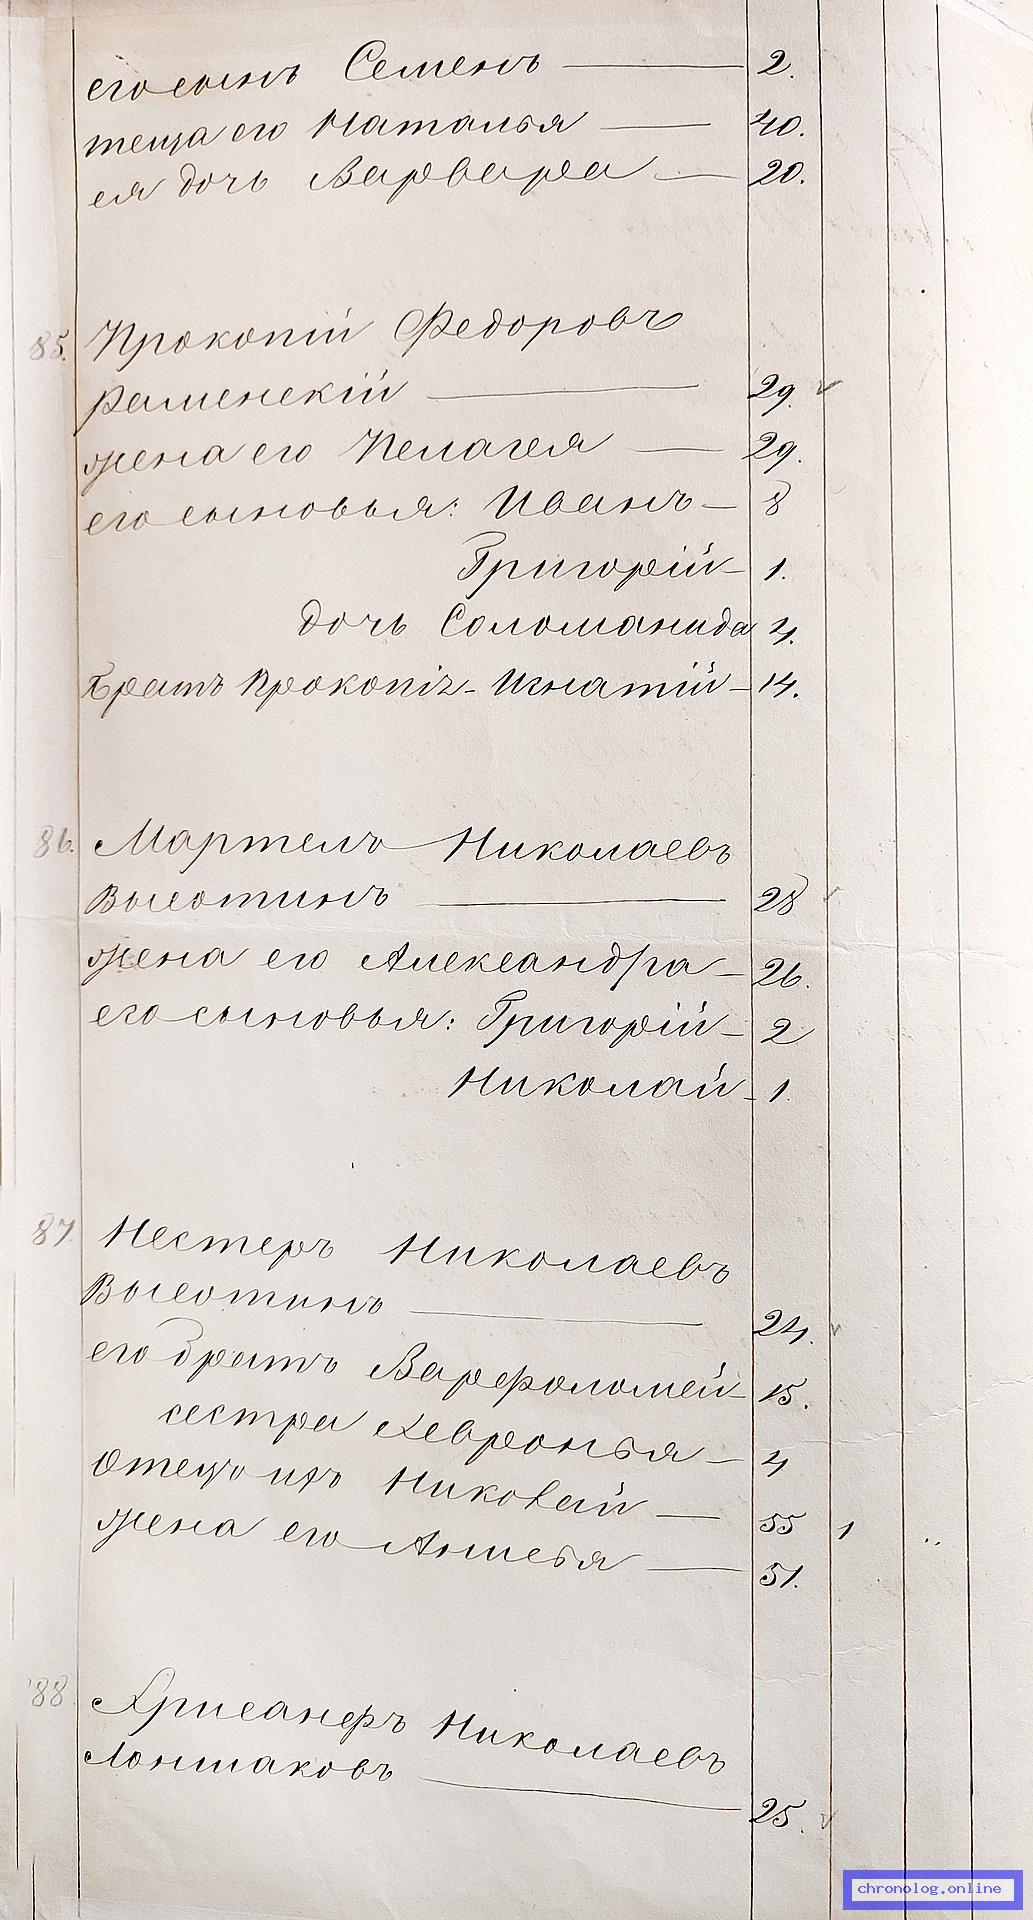 его сынъ Семенъ — 2.
теща его Наталья — 40.
ея дочь Варвара — 20.
85. Прокопій Федоровъ
Раменскій — 29.
жена его Пелагея — 29.
его сыновья: Иванъ — 8
Григорій — 1.
дочь Соломанида 4.
Братъ Прокопія - Игнатій — 14.
86. Мартелъ Николаевъ
Высотинъ — 28
жена его Александра — 26.
его сыновья: Григорій — 2
Николай — 1.
87. Нестеръ Николаевъ
Высотинъ — 24.
его братъ Варфоломей — 15.
сестра Хевронья — 4
Отецъ ихъ Николай — 55 1
жена его Анисья — 51.
88. Хрисанфъ Николаевъ
Лоншаковъ — 25.
chronolog.online